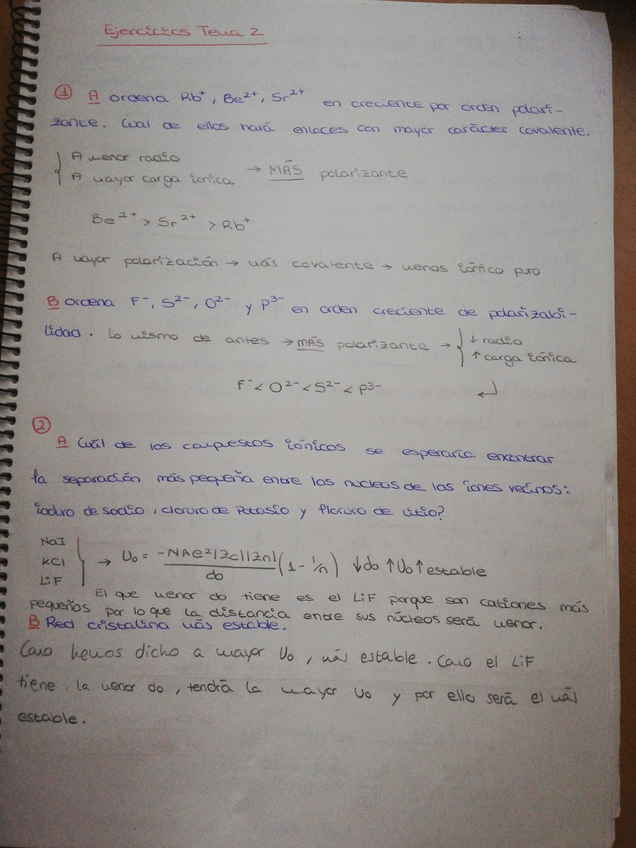 Ejercicios Tema 2
① A ordena Rb⁺, Be²⁺, Sr²⁺ en creciente por orden polari-
zante. Cual de ellos hará enlaces con mayor carácter covalente.
A menor radio
A mayor carga iónica → MÁS polarizante
Be²⁺ > Sr²⁺ > Rb⁺
A mayor polarización → más covalente → menos iónico puro
B ordena F⁻, S²⁻, O²⁻ y P³⁻ en orden creciente de polarizabi-
lidad. Lo mismo de antes → MÁS polarizante → ↓ radio
↑ carga iónica
F⁻ < O²⁻ < S²⁻ < P³⁻ ↵
②
A Cuál de los compuestos iónicos se esperaría encontrar
la separación más pequeña entre los nucleos de los iones vecinos:
ioduro de sodio, cloruro de Potasio y Floruro de litio?
NaI
KCl → U₀ = -NAe²|Zc||Zn| / d₀ (1 - 1/n) ↓do ↑U₀ ↑estable
LiF
El que menor do tiene es el LiF porque son cationes más
pequeños por lo que la distancia entre sus núcleos será menor.
B Red cristalina más estable.
Como hemos dicho a mayor U₀, más estable. Como el LiF
tiene la menor do, tendrá la mayor U₀ y por ello será el más
estable.